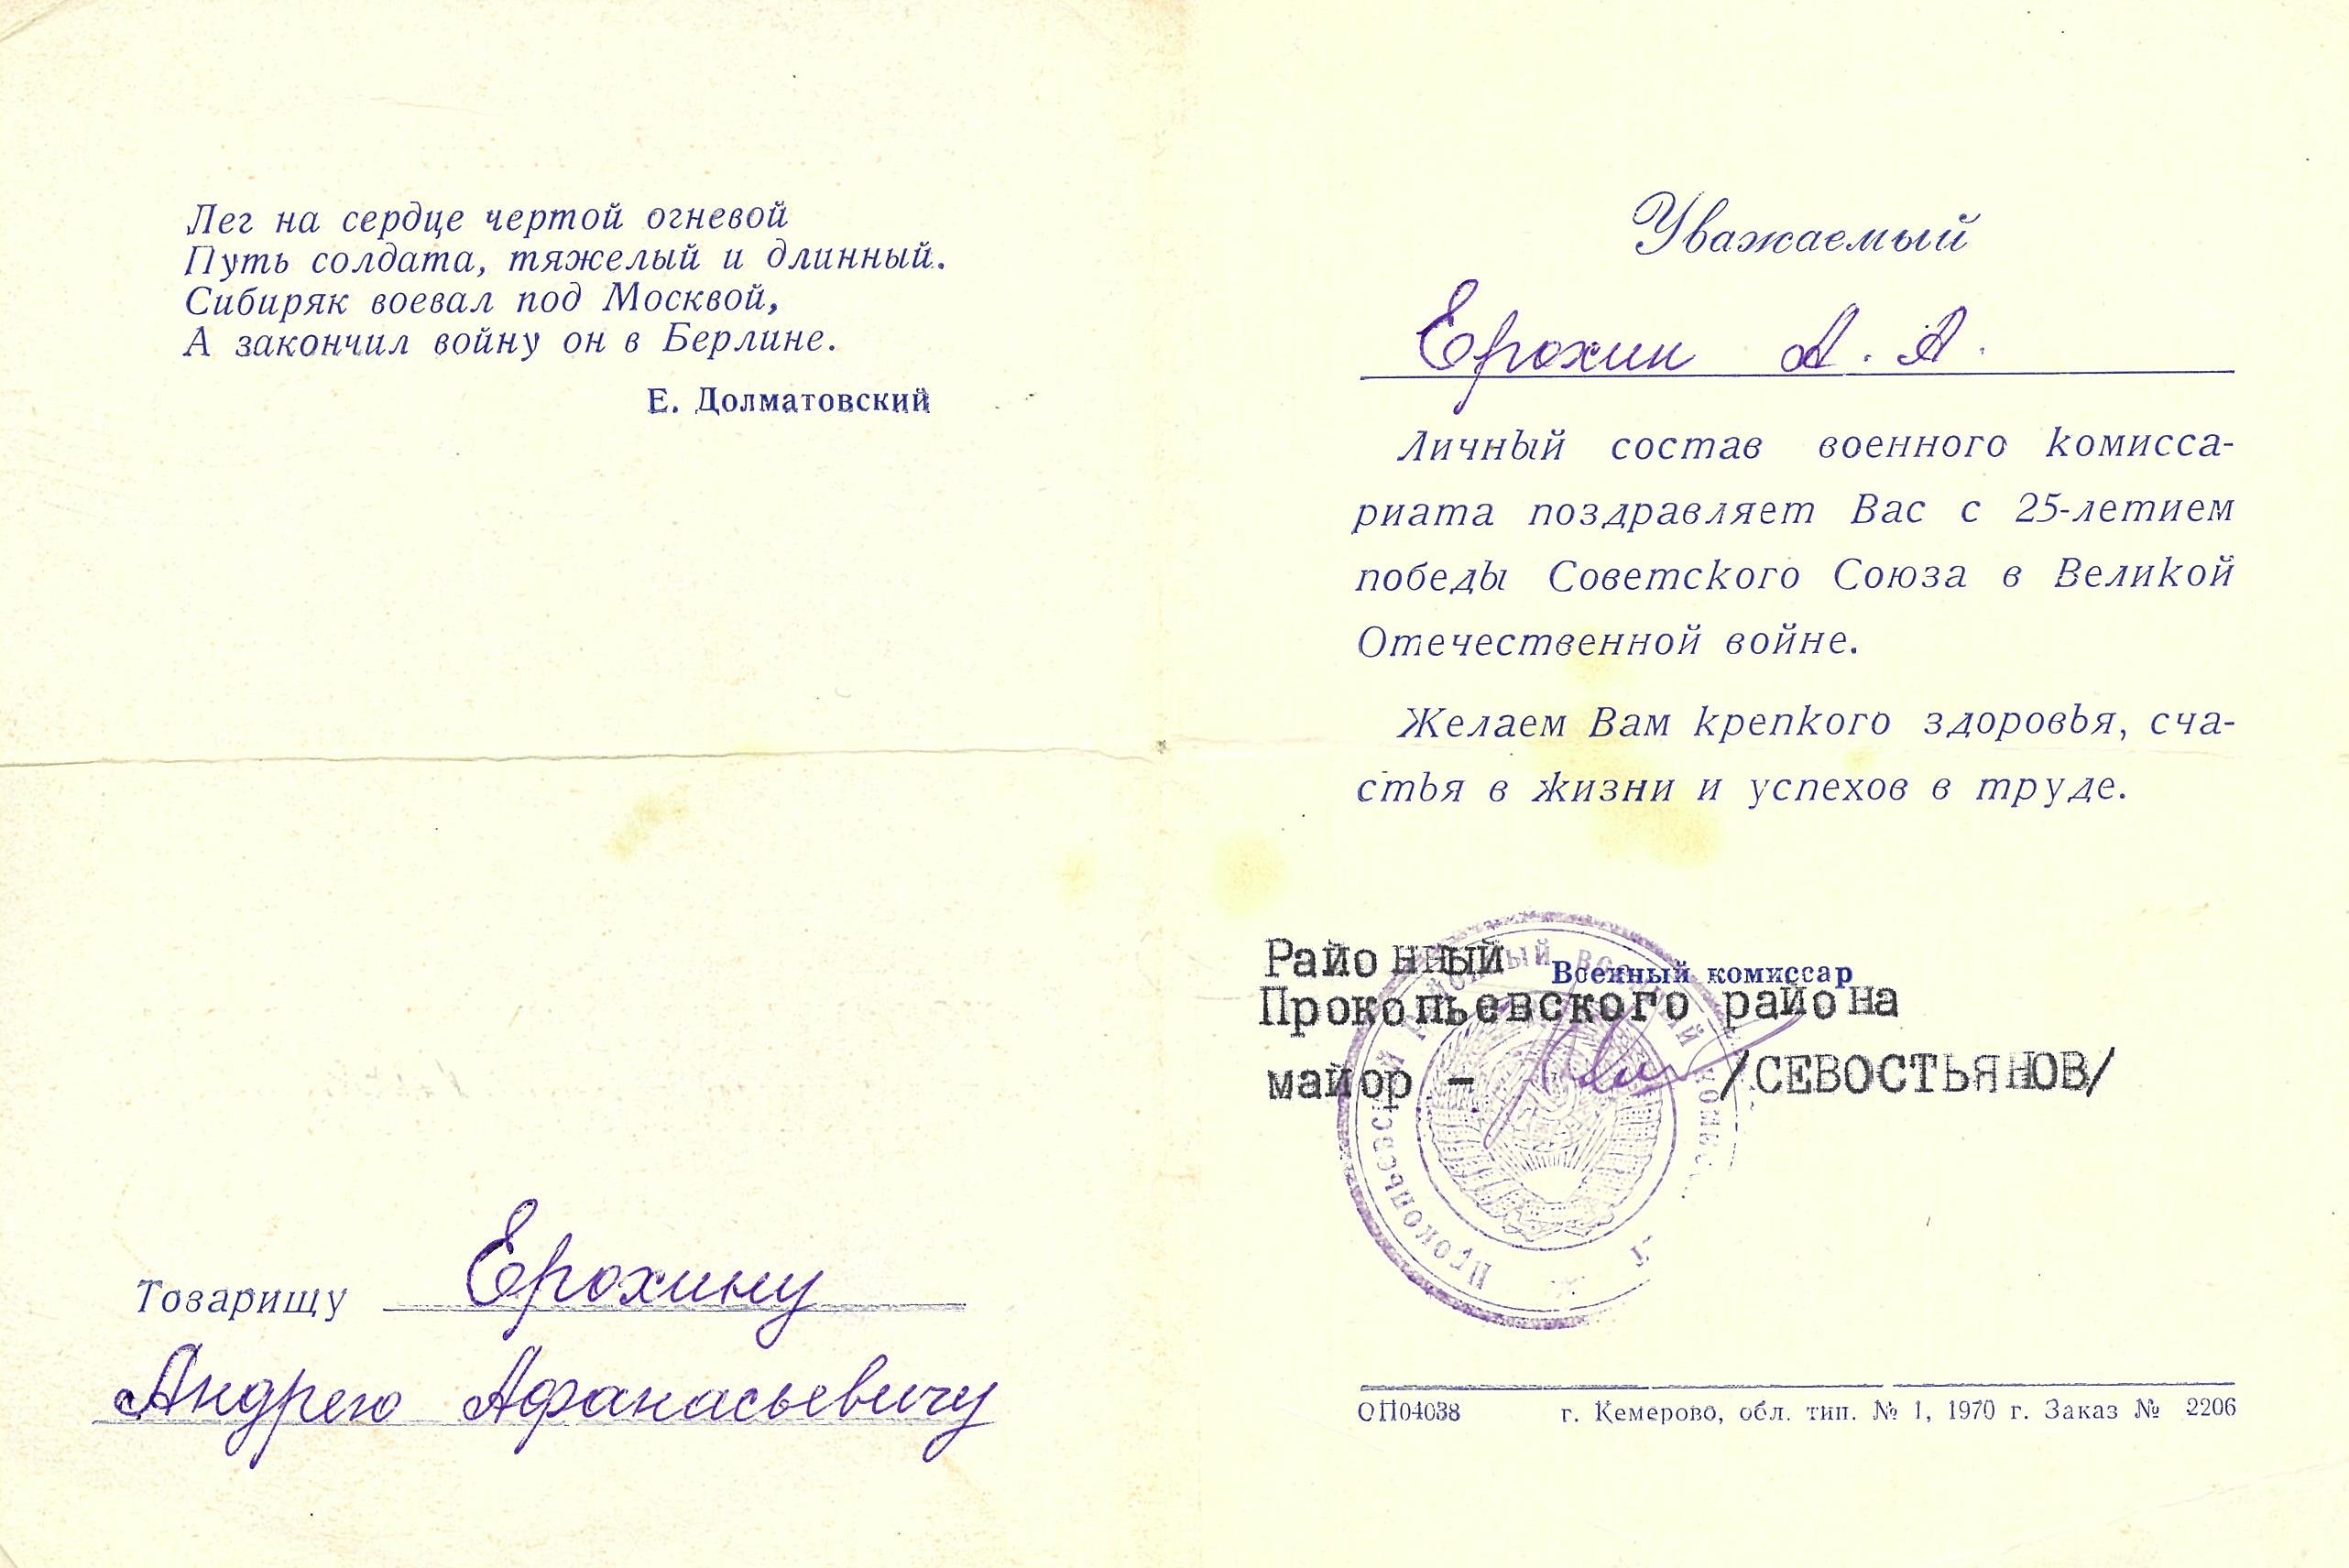 Лег на сердце чертой огневой
Путь солдата, тяжелый и длинный.
Сибиряк воевал под Москвой,
А закончил войну он в Берлине.
Е. Долматовский
Товарищу Ерохину
Андрею Афанасьевичу
Уважаемый
Ерохин А. А.
Личный состав военного комисса-
риата поздравляет Вас с 25-летием
победы Советского Союза в Великой
Отечественной войне.
Желаем Вам крепкого здоровья, сча-
стья в жизни и успехов в труде.
Районный Военный комиссар
Прокопьевского района
майор - /СЕВОСТЬЯНОВ/
ОП04038 г. Кемерово, обл. тип. № 1, 1970 г. Заказ № 2206